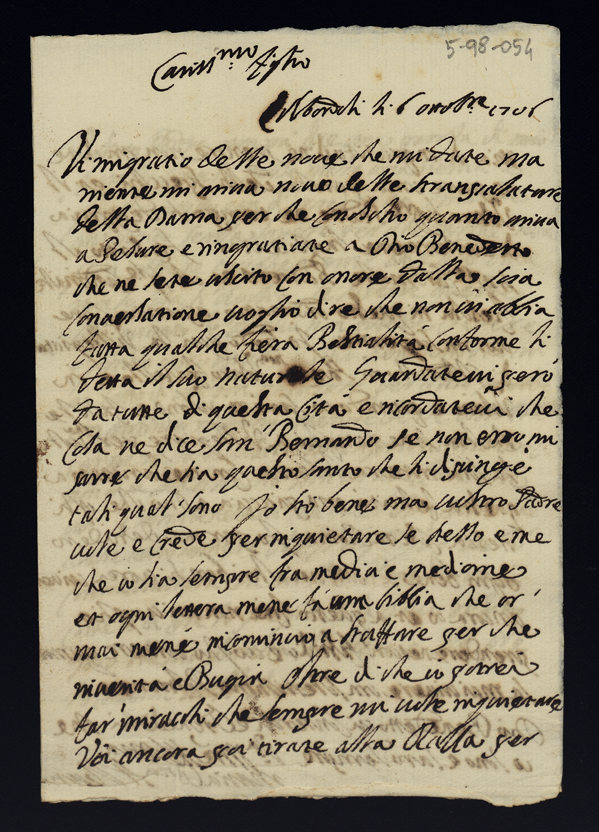 5-98-054
Cariss.mo figlio
li 6 ottobre 1706
Vi ringratio delle nove che mi date ma
niente mi ariva novo delle
della Dama per che conoscho quanto ariva
a e ringratiate a Dio Benedetto
che ne sete uscito con onore dalla sua
conversatione voglio dire che non vi abbia
fatta qualche fiera Bestialità conforme li
detta il suo naturale Guardatevi però
da tutte di questa Cità e ricordatevi che
cosa ne dice San Bernardo se non erro mi
pare che sia questo santo che li dipinge
tali quali sono Io stò bene ma vostro Padre
vole e crede per inquietare se stesso e me
che io sia sempre fra medici e medicine
et ogni lettera mene fà una bibbia che or
mai mene incomincio a stoffare per che
in verità è Bugia oltre di che io potrei
far miracoli che sempre mi vole inquietare
Voi ancora poi tirate alla Balla per